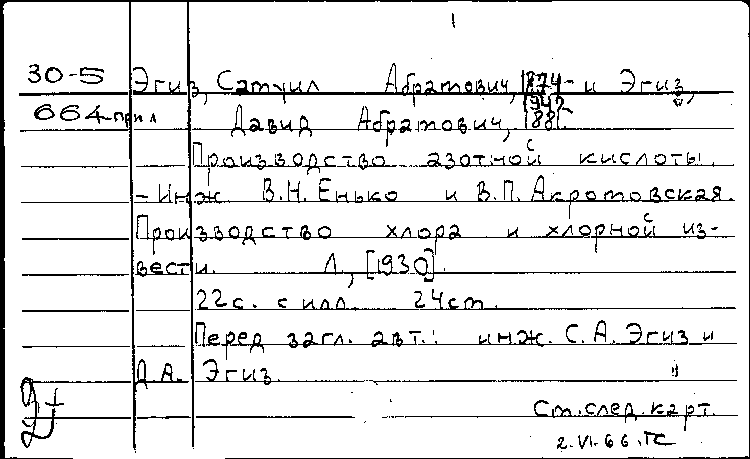 1
30-5 Эгиз, Самуил Абрамович, 1874- и Эгиз,
1942
664-прил Давид Абрамович, 1881-
Производство азотной кислоты.
- Инж. В.Н. Енько и В.П. Акромовская.
Производство хлора и хлорной из-
вести. Л., [1930].
22 с. с илл. 24 см.
Перед загл. авт.: инж. С.А. Эгиз и
Д.А. Эгиз.
См. след. карт.
2.VI.66. ГС